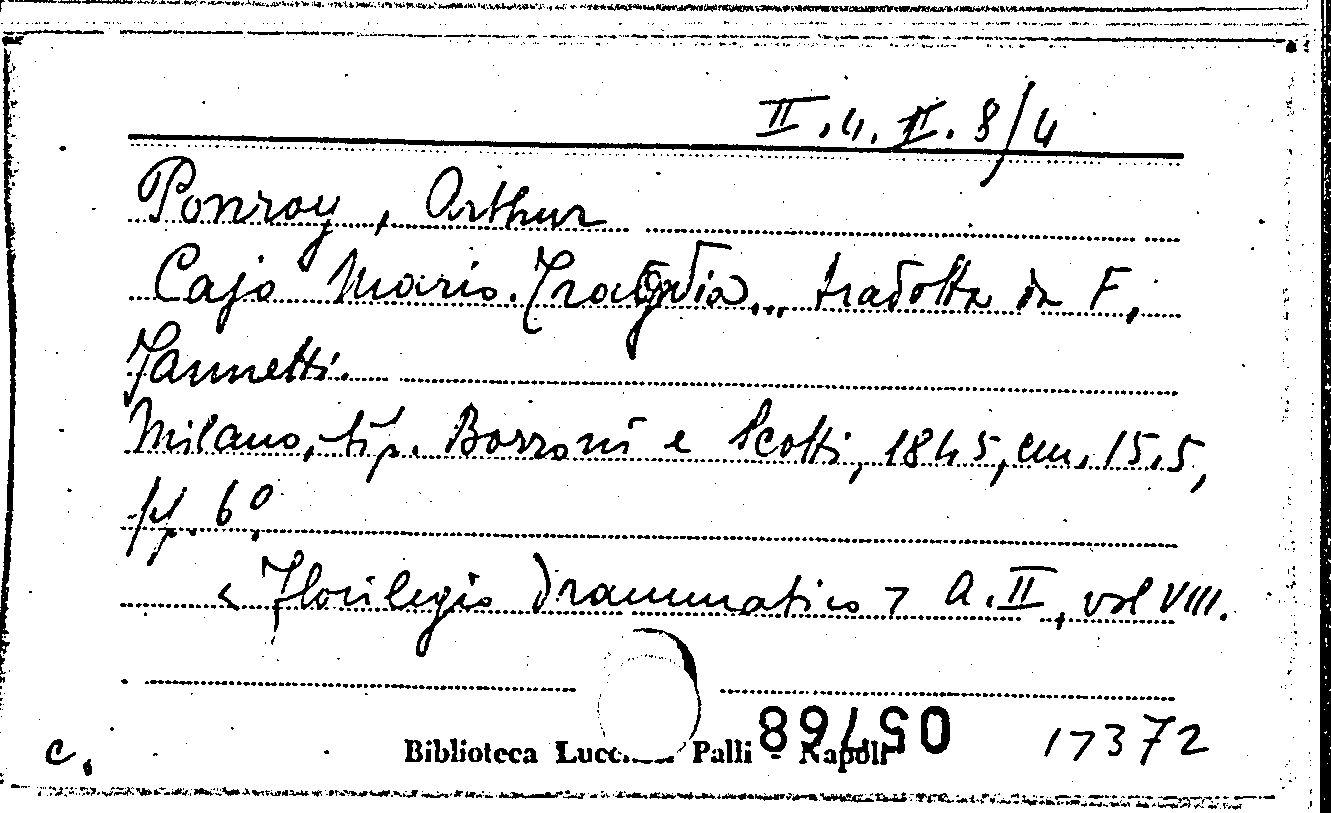 II.4.II.8/4
Ponroy, Arthur
Cajo Mario. Tragedia... tradotta da F.
Jannetti.
Milano, tip. Borroni e Scotti, 1845, cm. 15,5,
pp. 60.
<Florilegio Drammatico> A.II, vol VIII.
Biblioteca Palli - Napoli
17372
c.